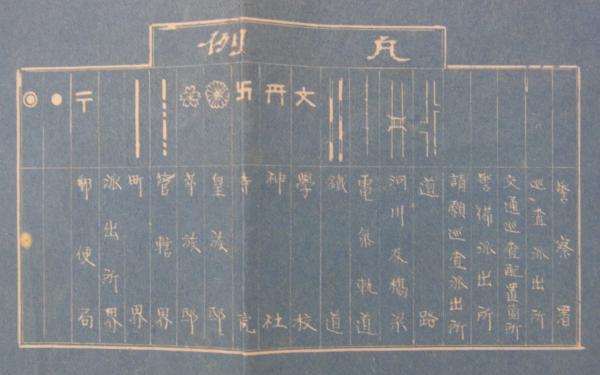 凡例
警察署
巡査派出所
交通巡査配置箇所
警備派出所
請願巡査派出所
道路
河川及橋梁
電氣軌道
鐵道
文 學校
神社
卍 寺院
皇族邸
華族邸
管轄界
町界
派出所界
〒 郵便局